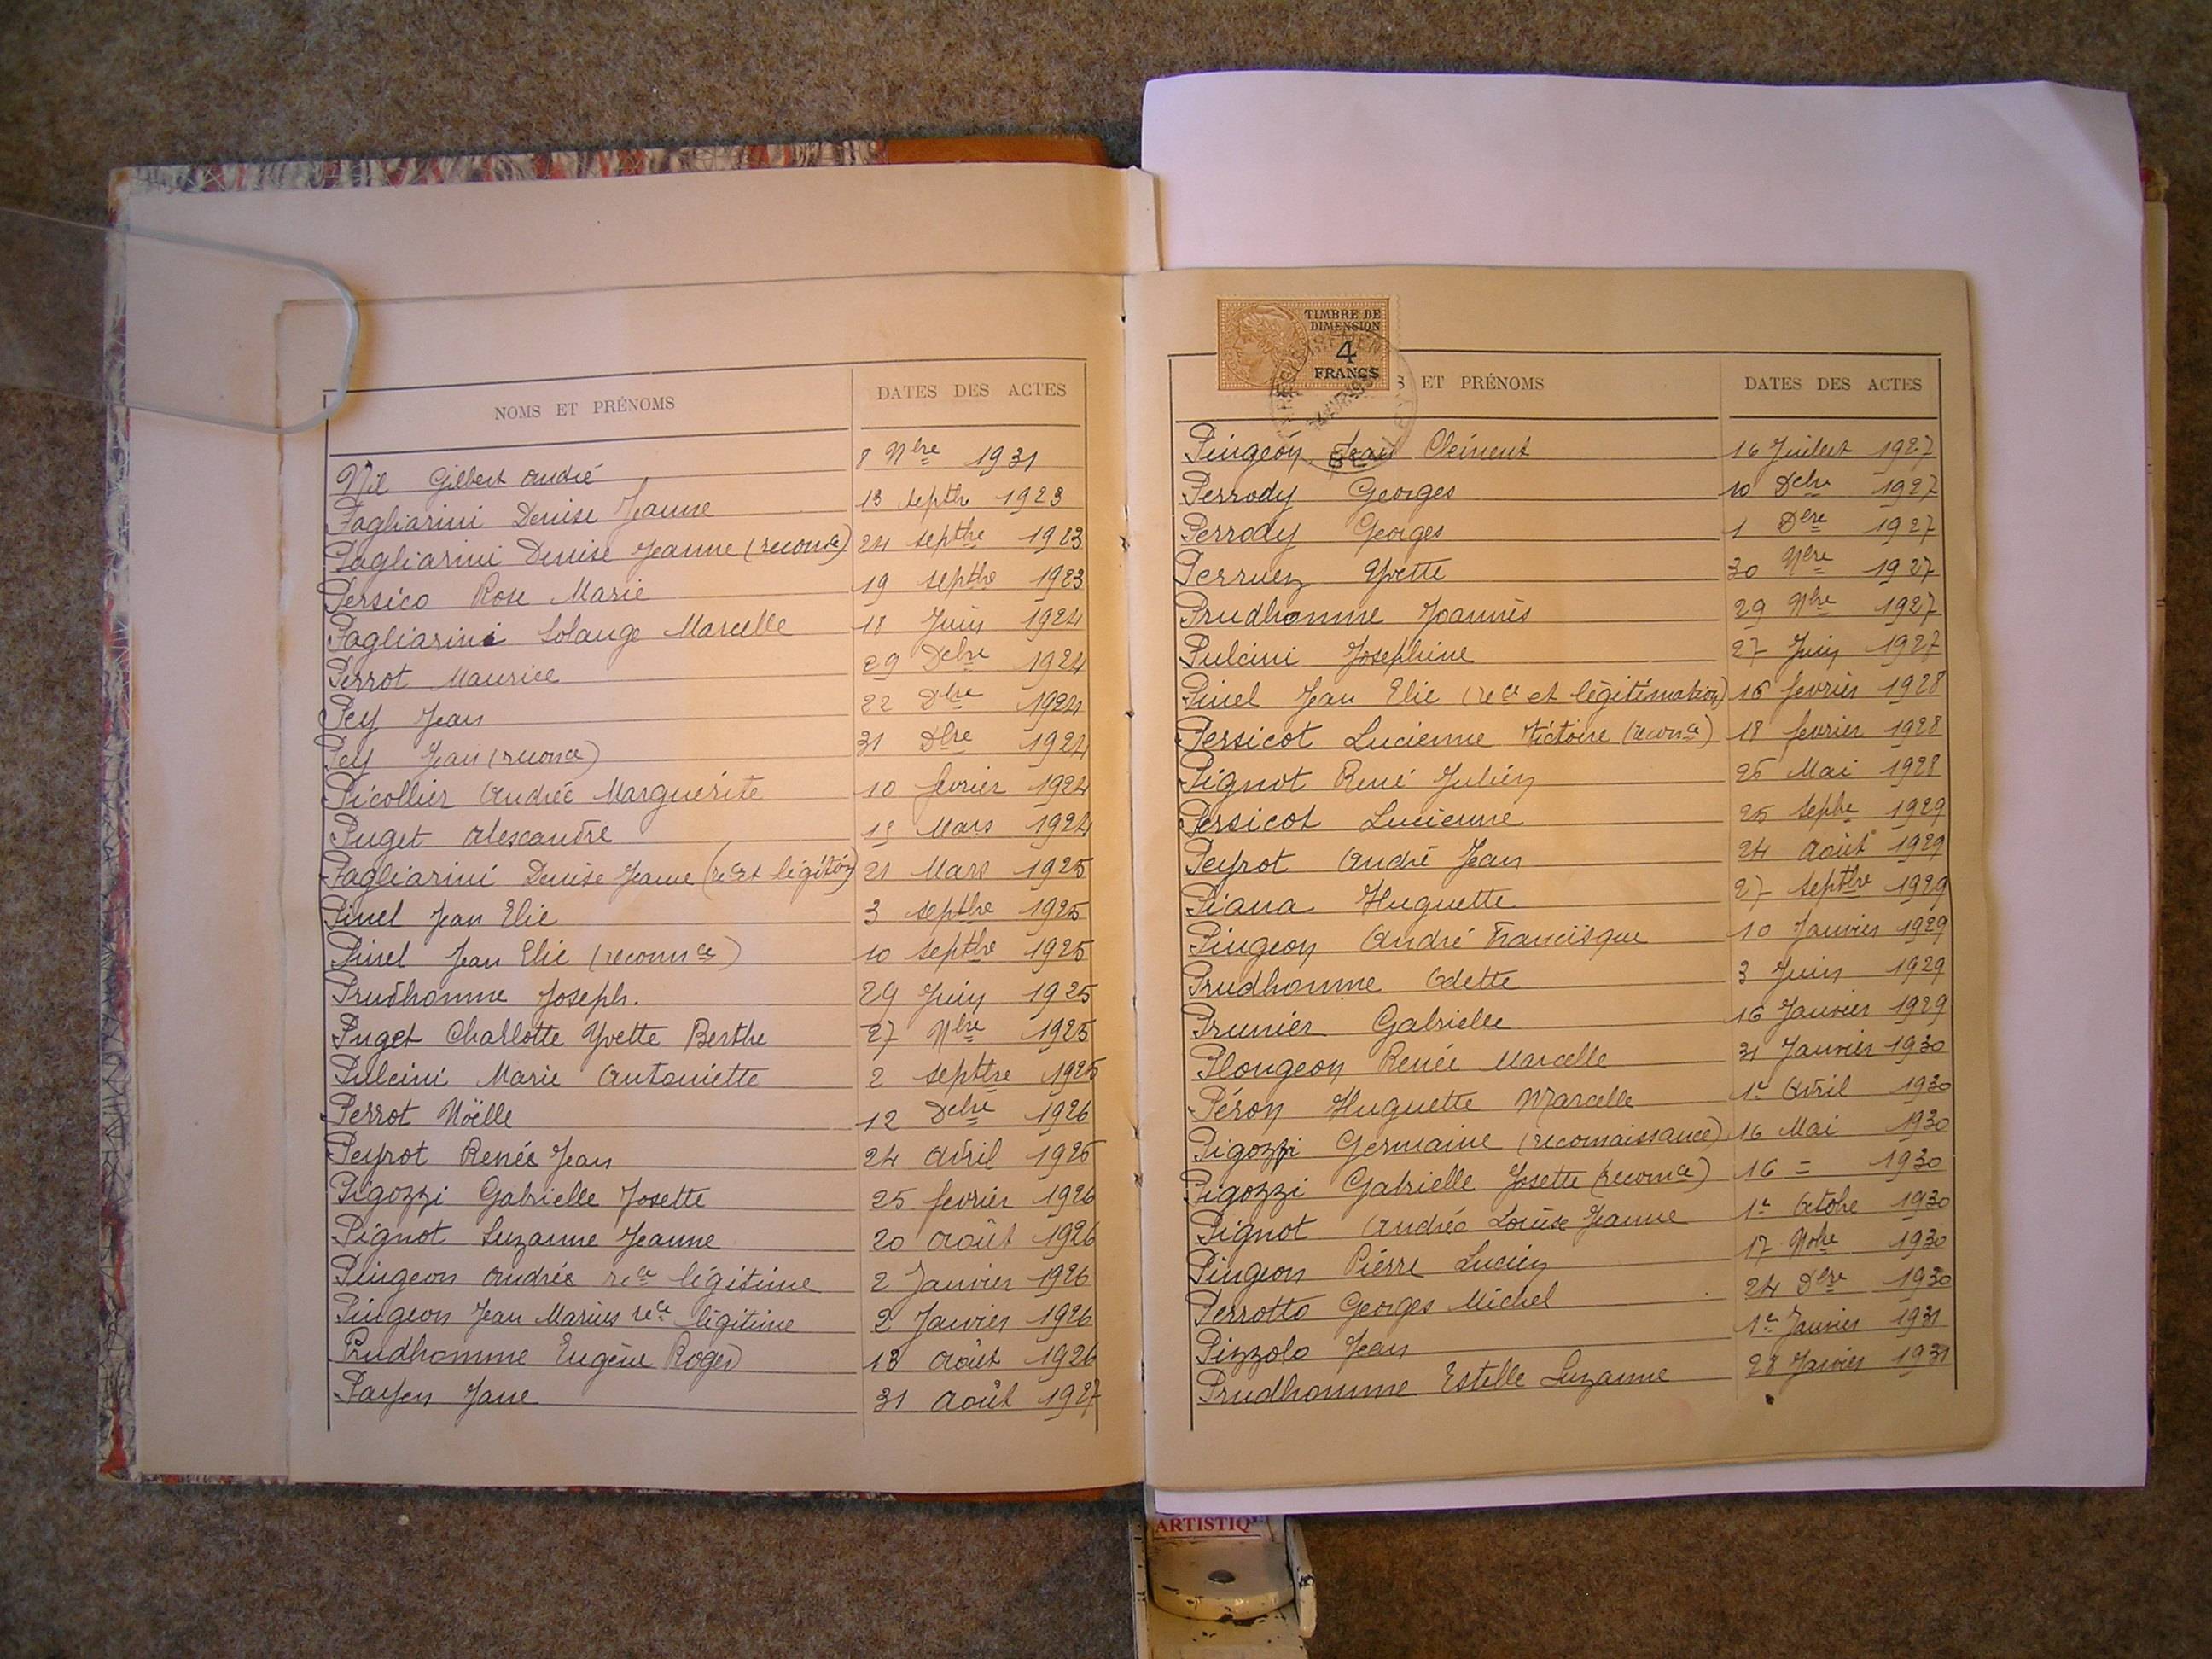 NOMS ET PRÉNOMS DATES DES ACTES
Nil Gilbert André 8 Nbre 1931
Pagliarini Denise Jeanne 13 septbre 1923
Pagliarini Denise Jeanne (reconce) 24 septbre 1923
Persico Rose Marie 19 septbre 1923
Pagliarini Solange Marcelle 18 Juin 1924
Perrot Maurice 29 Dcbre 1924
Pey Jean 22 Dbre 1924
Pey Jean (reconce) 31 Dbre 1924
Picollier Andréé Marguérite 10 fevrier 1924
Puget Alexandre Mars 1924
Pagliarini Denise Jeanne (rce et légiton) 21 Mars 1925
Pinel Jean Elie 3 septbre 1925
Pinel Jean Elie (reconnce) 10 septbre 1925
Prudhomme Joseph. 29 Juin 1925
Puget Charlotte Yvette Berthe 27 Nbre 1925
Pulcini Marie Antoniette 2 septbre 1925
Perrot Noëlle 12 Dcbre 1926
Peyrot Renée Jean 24 Avril 1926
Pigozzi Gabrielle Josette 25 fevrier 1926
Pignot Suzanne Jeanne 20 Août 1926
Pingeon Andrée rece légitime 2 Janvier 1926
Pingeon Jean Marius rece légitime 2 Janvier 1926
Prudhomme Eugène Roger 13 Août 1926
Payen Jane 31 Août 1927
TIMBRE DE
DIMENSION
4
FRANCS
S ET PRÉNOMS DATES DES ACTES
Pingeon Jean Clément 16 Juillet 1927
Perrody Georges 10 Dcbre 1927
Perrody Georges 1 Dbre 1927
Perruez Yvette 30 Nbre 1927
Prudhomme Joannès 29 Nbre 1927
Pulcini Josephine 27 Juin 1927
Pinel Jean Elie (rece et légitimation) 16 fevrier 1928
Persicot Lucienne Victoire (reconce) 18 fevrier 1928
Pignot René Julien 26 Mai 1928
Persicot Lucienne 25 Septbre 1929
Peyrot André Jean 24 Août 1929
Piana Huguette 27 septbre 1929
Pingeon André Francisque 10 Janvier 1929
Prudhomme Odette 3 Juin 1929
Prunier Gabrielle 16 Janvier 1929
Plongeon Renée Marcelle 31 Janvier 1930
Péron Huguette Marcelle 1er Avril 1930
Pigozzi Germaine (reconnaissance) 16 Mai 1930
Pigozzi Gabrielle Josette (reconce) 16 = 1930
Pignot Andréé Louise Jeanne 1er Octobre 1930
Pingeon Pierre Lucien 17 Nobre 1930
Perrotto Georges Michel 24 Dbre 1930
Pizzolo Jean 1er Janvier 1931
Prudhomme Estelle Suzanne 28 Janvier 1931
ARTISTIQ